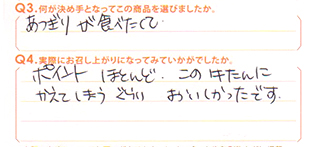 Q3.何が決め手となってこの商品を選びましたか。
あっさりが食べたくて
Q4.実際にお召し上がりになってみていかがでしたか。
ポイント ほとんど. この牛たんに
かえてしまう ぐらい おいしかったです.